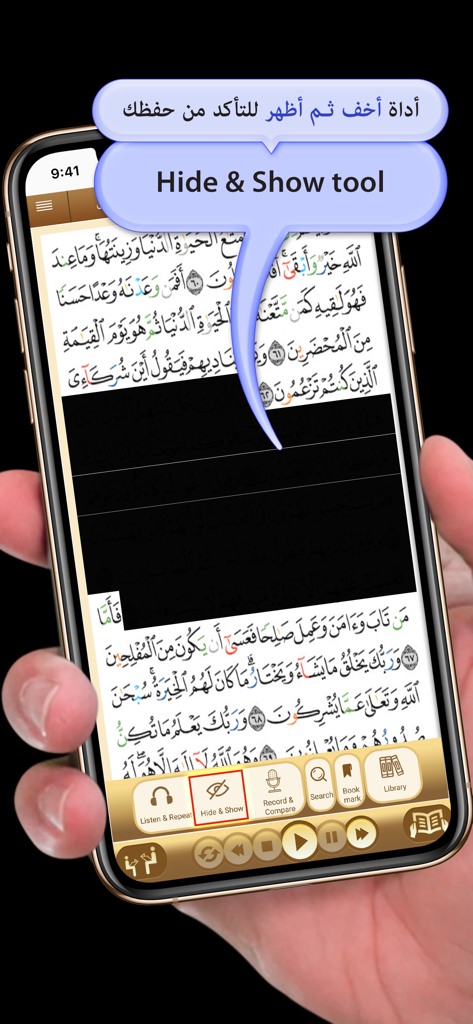 أداة أخف ثم أظهر للتأكد من حفظك
Hide & Show tool
9:41
ٱللَّهِ خَيْرٌ وَأَبْقَىٰٓ ۚ
ونَ ٦٠ أَفَمَن وَعَدْنَٰهُ وَعْدًا حَسَنًا
فَهُوَ لَٰقِيهِ كَمَن مَّتَّعْنَٰهُ
ٱلْحَيَوٰةِ ٱلدُّنْيَا ثُمَّ هُوَ يَوْمَ ٱلْقِيَٰمَةِ
مِنَ ٱلْمُحْضَرِينَ ٦١
يُنَادِيهِمْ فَيَقُولُ أَيْنَ شُرَكَآءِىَ
ٱلَّذِينَ كُنتُمْ تَزْعُمُونَ ٦٢
فَأَمَّا
مَن تَابَ وَءَامَنَ وَعَمِلَ صَٰلِحًا فَعَسَىٰٓ أَن يَكُونَ مِنَ ٱلْمُفْلِحِينَ
٦٧ وَرَبُّكَ يَخْلُقُ مَا يَشَآءُ وَيَخْتَارُ ۗ مَا كَانَ لَهُمُ ٱلْخِيَرَةُ ۚ سُبْحَٰنَ
ٱللَّهِ وَتَعَٰلَىٰ عَمَّا يُشْرِكُونَ ٦٨ وَرَبُّكَ يَعْلَمُ مَا تُكِنُّ
صُدُورُهُمْ وَمَا يُعْلِنُونَ ٦٩ وَهُوَ ٱللَّهُ لَآ إِلَٰهَ إِلَّا هُوَ ۖ لَهُ
Listen & Repeat
Hide & Show
Record & Compare
Search
Book mark
Library